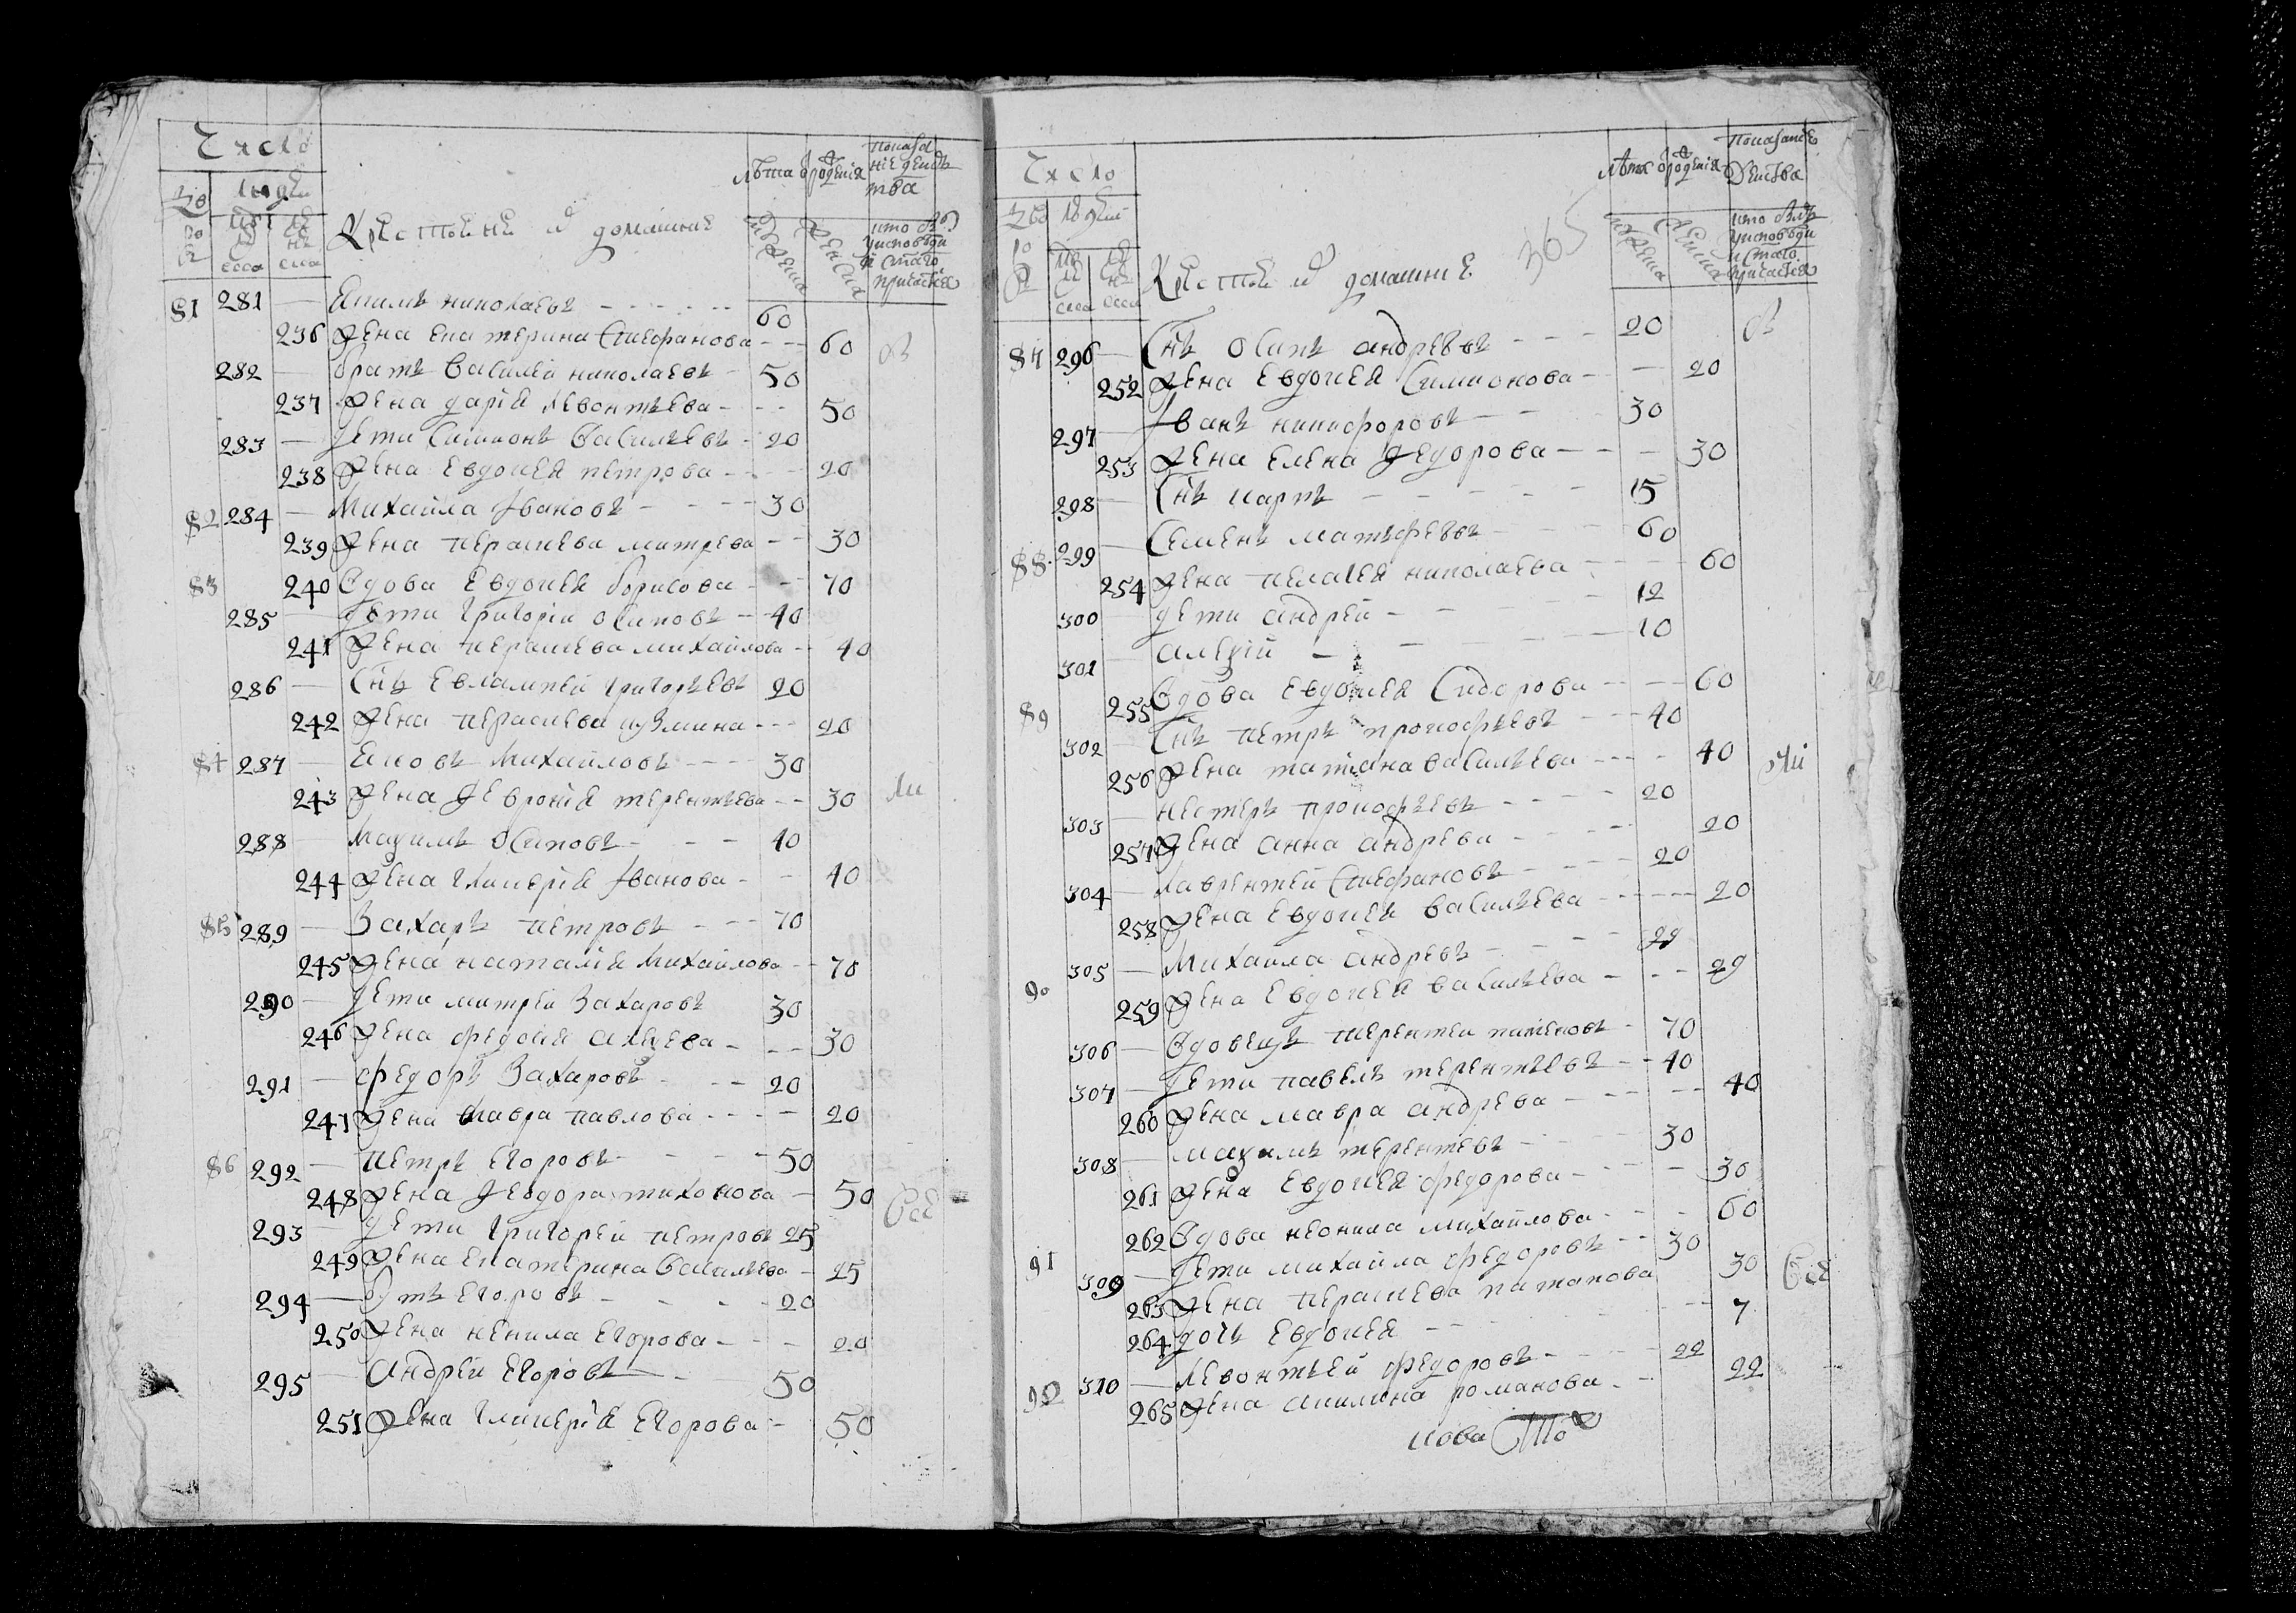 Число
людей
лѣта ѿ рожденія
показаніе действа
дворовъ
мужеска
женска
Крестьяне и домашние
мужеска
женска
кто былъ у исповѣди и стаго причастія
81 281 — Екимъ николаевъ - - - 60
236 жена екатерина Стефанова - - 60 в
282 — братъ василей николаевъ - 50
237 жена дарія левонтьева - - - 50
283 — дети симионъ васильевъ - 20
238 жена евдокея петрова - - - 20
82 284 — михайла Iвановъ - - - 30
239 жена параскева митрева - - 30
83 240 вдова евдокея борисова - - 70
285 — дети григорiи осиповъ - 40
241 жена параскева михайлова - - 40
286 — снъ евлампей григорьевъ 20
242 жена параскева кузмина - - - 20
84 287 — Ековъ михайловъ - - - 30
243 жена февронiя терентьева - - 30 ли
288 — маѯимъ осиповъ - - - 40
244 жена гликерiя Iванова - - 40
85 289 — Захаръ петровъ - - - 70
245 жена наталiя михайлова - - 70
290 — дети митрей Захаровъ 30
246 жена федосiя - - - 30
291 — федоръ Захаровъ - - - 20
247 жена мавра павлова - - - 20
86 292 — петръ егоровъ - - - 50
248 жена февдора тихонова - 50 все
293 — дети григорей петровъ 25
249 жена екатерина васильева - 25
294 — егоровъ - - - 20
250 жена ненила егорова - - - 20
295 — андрей егоровъ - 50
251 жена гликерiя егорова - 50
Число
людей
лѣта ѿ рожденія
показание действа
дворовъ
мужеска
женска
Крестьяне и домашние
365
мужеска
женска
кто былъ у исповѣди и стаго причастія
87 296 — снъ осипъ андревъ - - - 20 в
252 жена евдокея симионова - - 20
297 — Iванъ никифоровъ - - 30
253 жена елена федорова - - - 30
298 — снъ карпъ - - - 15
88 299 — семенъ матьфеевъ - - - 60
254 жена пелагея николаева - - - 60
300 дети андрей - - - 12
301 — алеѯiй - - - 10
89 255 вдова евдокея сидорова - - - 60
302 — снъ петръ прокофьевъ - - - 40
256 жена татiана васильева - - - 40 ли
303 — нестеръ прокофьевъ - - - 20
257 жена анна андрева - - - 20
304 — лаврентей стефановъ - - - 20
258 жена евдокея васильева - - - 20
90 305 — михаила андревъ - - - 29
259 жена евдокея васильева - - - 29
306 — вдовецъ терентеи пименовъ - 70
307 — дети павелъ терентьевъ - - 40
260 жена мавра андрева - - - 40
308 — маѯимъ терентевъ - - - 30
261 жена евдокея федорова - - - 30
262 вдова неонила михайлова - - - 60
91 309 — дети михайла федоровъ - - 30
263 жена параскева патапова 30 все
264 дочь евдокея - - - 7
92 310 — левонтьей федоровъ - - - 22
265 жена акилина романова - - 22